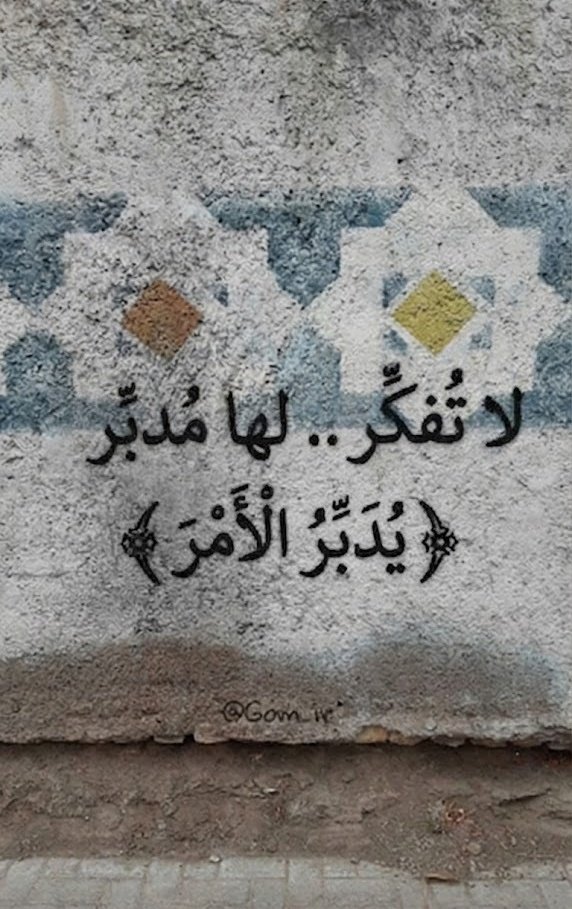 لا تُفكِّر .. لها مُدبِّر
﴿ يُدَبِّرُ الْأَمْرَ ﴾
@Gom_ir